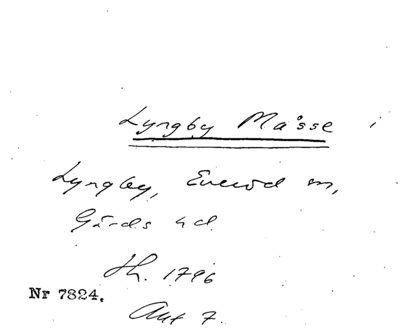 Lyngby Måsse i
Lyngby, Everöd sn,
Gärds hd
Th. 1796
Nr 7824.
Aut 7.